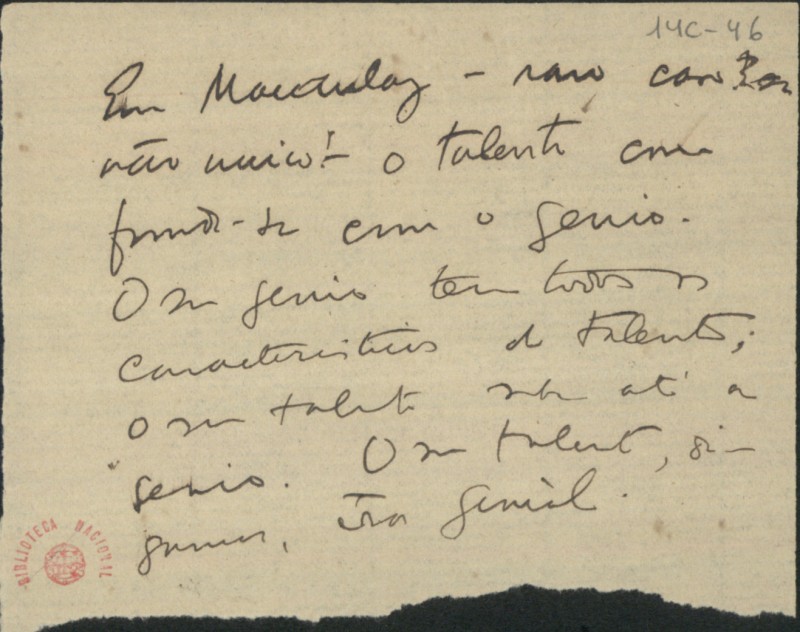 14C-46
Em Macaulay – raro caso!
não unico! – o talento con-
funde-se com o genio.
O seu genio tem todos os
caracteristicos do talento;
o seu talento sobe até a
genio. O seu talento, di-
gamos, era genial.
BIBLIOTECA NACIONAL